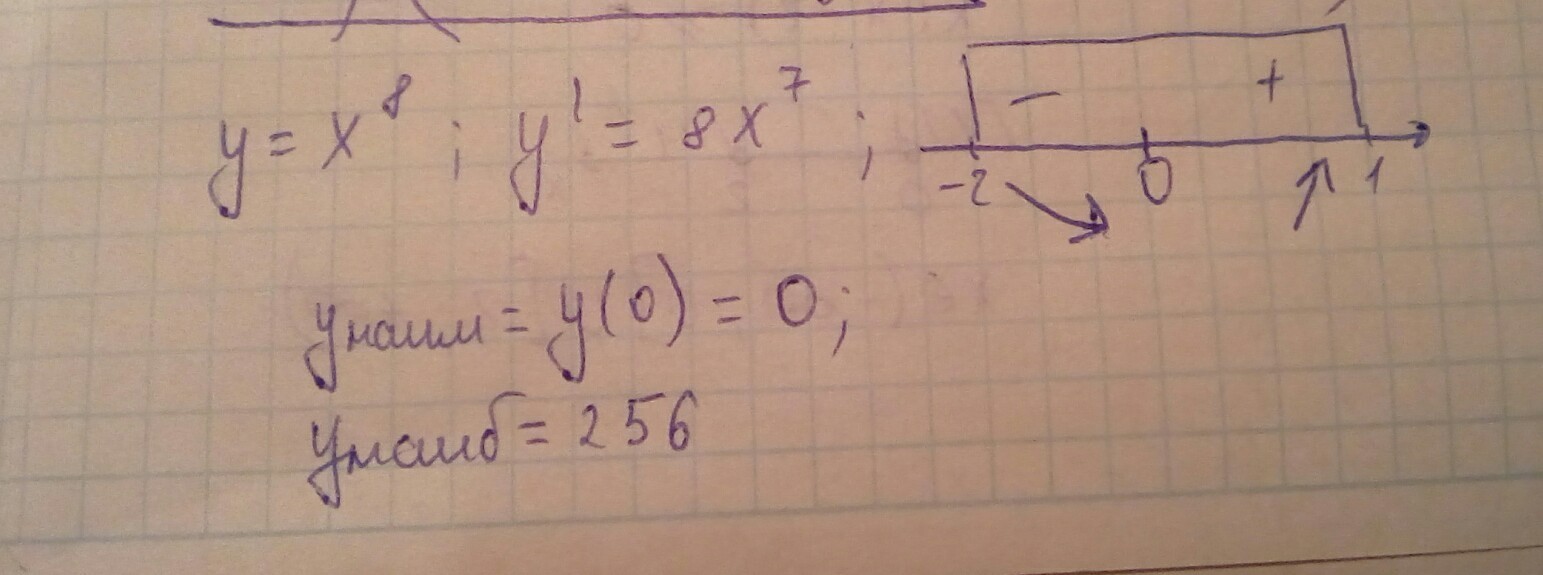 y = x⁸ ; y' = 8x⁷ ; - +
-2 0 1
yнаим = y(0) = 0;
yнаиб = 256